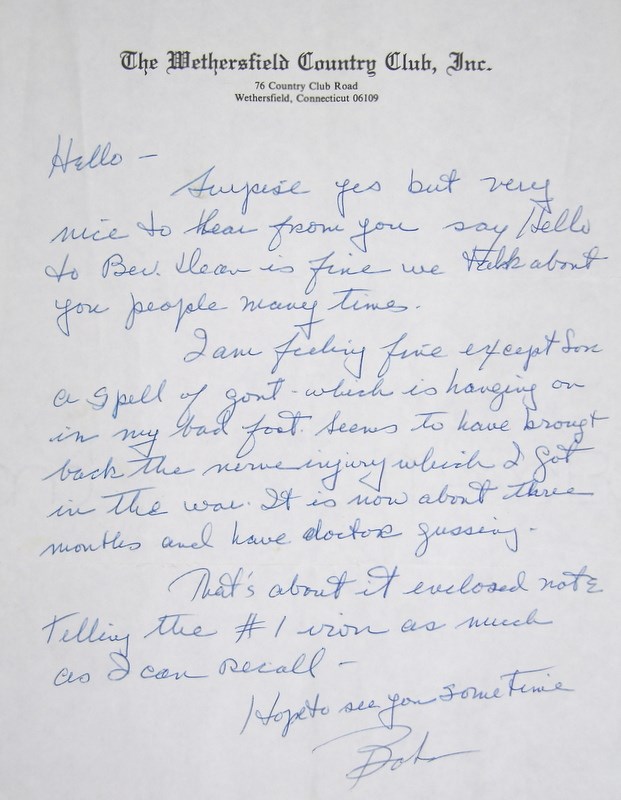 The Wethersfield Country Club, Inc.
76 Country Club Road
Wethersfield, Connecticut 06109
Hello -
Surpise yes but very
nice to hear from you say Hello
to Bev. Dean is fine we talk about
you people many times.
I am feeling fine except for
a spell of gout - which is hanging on
in my bad foot. Seems to have brougt
back the nerve injury which I got
in the war. It is now about three
months and have doctor gussing.
That's about it enclosed note
Telling the #1 iron as much
as I can recall -
Hope to see you sometime
Bob